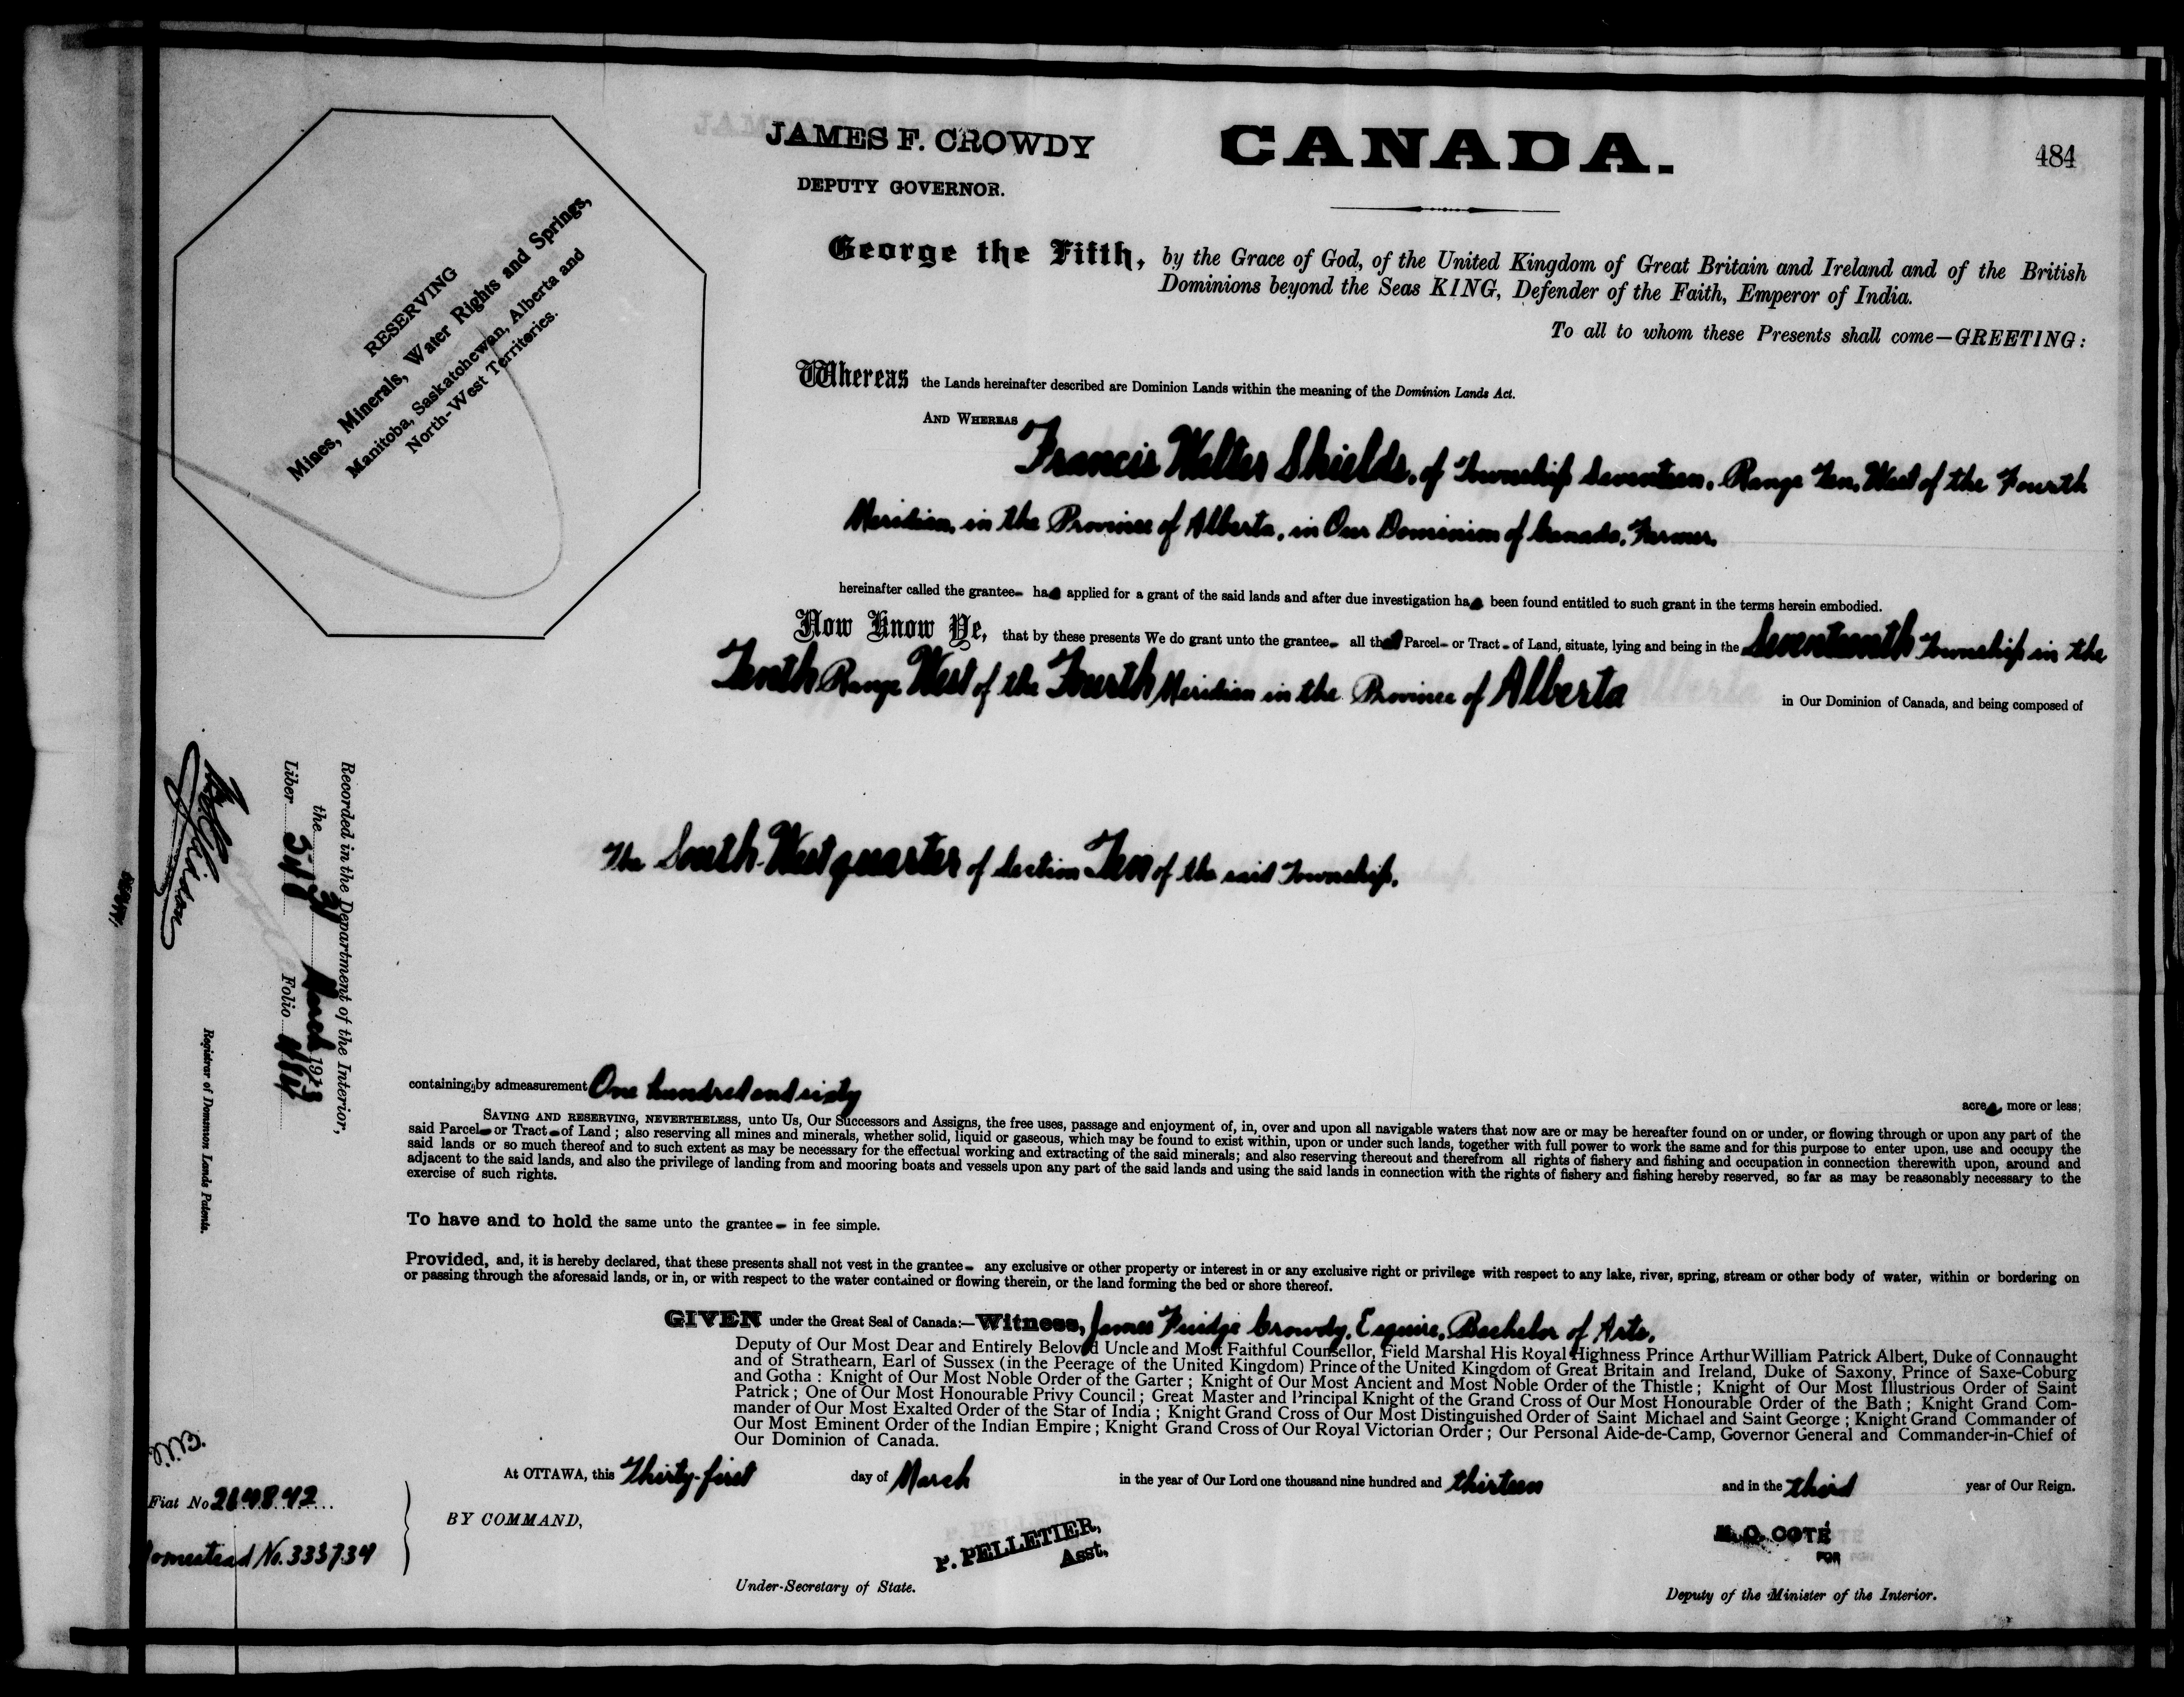 JAMES F. CROWDY
DEPUTY GOVERNOR.
CANADA.
484
RESERVING
Mines, Minerals, Water Rights and Springs,
Manitoba, Saskatchewan, Alberta and
North-West Territories.
George the Fifth, by the Grace of God, of the United Kingdom of Great Britain and Ireland and of the British
Dominions beyond the Seas KING, Defender of the Faith, Emperor of India.
To all to whom these Presents shall come—GREETING:
Whereas the Lands hereinafter described are Dominion Lands within the meaning of the Dominion Lands Act.
AND WHEREAS
Francis Walter Shields, of Township Seventeen, Range Ten, West of the Fourth
Meridian, in the Province of Alberta, in Our Dominion of Canada, Farmer,
hereinafter called the grantee- has applied for a grant of the said lands and after due investigation has been found entitled to such grant in the terms herein embodied.
Now Know Ye, that by these presents We do grant unto the grantee- all that Parcel- or Tract- of Land, situate, lying and being in the Seventeenth Township in the
Tenth Range West of the Fourth Meridian in the Province of Alberta in Our Dominion of Canada, and being composed of
The South-West quarter of Section Ten of the said Township.
containing by admeasurement One hundred and sixty acres, more or less;
SAVING AND RESERVING, NEVERTHELESS, unto Us, Our Successors and Assigns, the free uses, passage and enjoyment of, in, over and upon all navigable waters that now are or may be hereafter found on or under, or flowing through or upon any part of the
said Parcel- or Tract- of Land; also reserving all mines and minerals, whether solid, liquid or gaseous, which may be found to exist within, upon or under such lands, together with full power to work the same and for this purpose to enter upon, use and occupy the
said lands or so much thereof and to such extent as may be necessary for the effectual working and extracting of the said minerals; and also reserving thereout and therefrom all rights of fishery and fishing and occupation in connection therewith upon, around and
adjacent to the said lands, and also the privilege of landing from and mooring boats and vessels upon any part of the said lands and using the said lands in connection with the rights of fishery and fishing hereby reserved, so far as may be reasonably necessary to the
exercise of such rights.
To have and to hold the same unto the grantee- in fee simple.
Provided, and, it is hereby declared, that these presents shall not vest in the grantee- any exclusive or other property or interest in or any exclusive right or privilege with respect to any lake, river, spring, stream or other body of water, within or bordering on
or passing through the aforesaid lands, or in, or with respect to the water contained or flowing therein, or the land forming the bed or shore thereof.
GIVEN under the Great Seal of Canada:—Witness, James Fuidge Crowdy, Esquire, Bachelor of Arts,
Deputy of Our Most Dear and Entirely Beloved Uncle and Most Faithful Counsellor, Field Marshal His Royal Highness Prince Arthur William Patrick Albert, Duke of Connaught
and of Strathearn, Earl of Sussex (in the Peerage of the United Kingdom) Prince of the United Kingdom of Great Britain and Ireland, Duke of Saxony, Prince of Saxe-Coburg
and Gotha: Knight of Our Most Noble Order of the Garter; Knight of Our Most Ancient and Most Noble Order of the Thistle; Knight of Our Most Illustrious Order of Saint
Patrick; One of Our Most Honourable Privy Council; Great Master and Principal Knight of the Grand Cross of Our Most Honourable Order of the Bath; Knight Grand Com-
mander of Our Most Exalted Order of the Star of India; Knight Grand Cross of Our Most Distinguished Order of Saint Michael and Saint George; Knight Grand Commander of
Our Most Eminent Order of the Indian Empire; Knight Grand Cross of Our Royal Victorian Order; Our Personal Aide-de-Camp, Governor General and Commander-in-Chief of
Our Dominion of Canada.
At OTTAWA, this Thirty-first day of March in the year of Our Lord one thousand nine hundred and thirteen and in the third year of Our Reign.
BY COMMAND,
P. PELLETIER,
Asst.
Under-Secretary of State.
N. O. COTÉ
FOR
Deputy of the Minister of the Interior.
Recorded in the Department of the Interior,
the 31 March 1913
Liber Folio 484
Registrar of Dominion Lands Patents.
Fiat No 264842
Homestead No. 333734